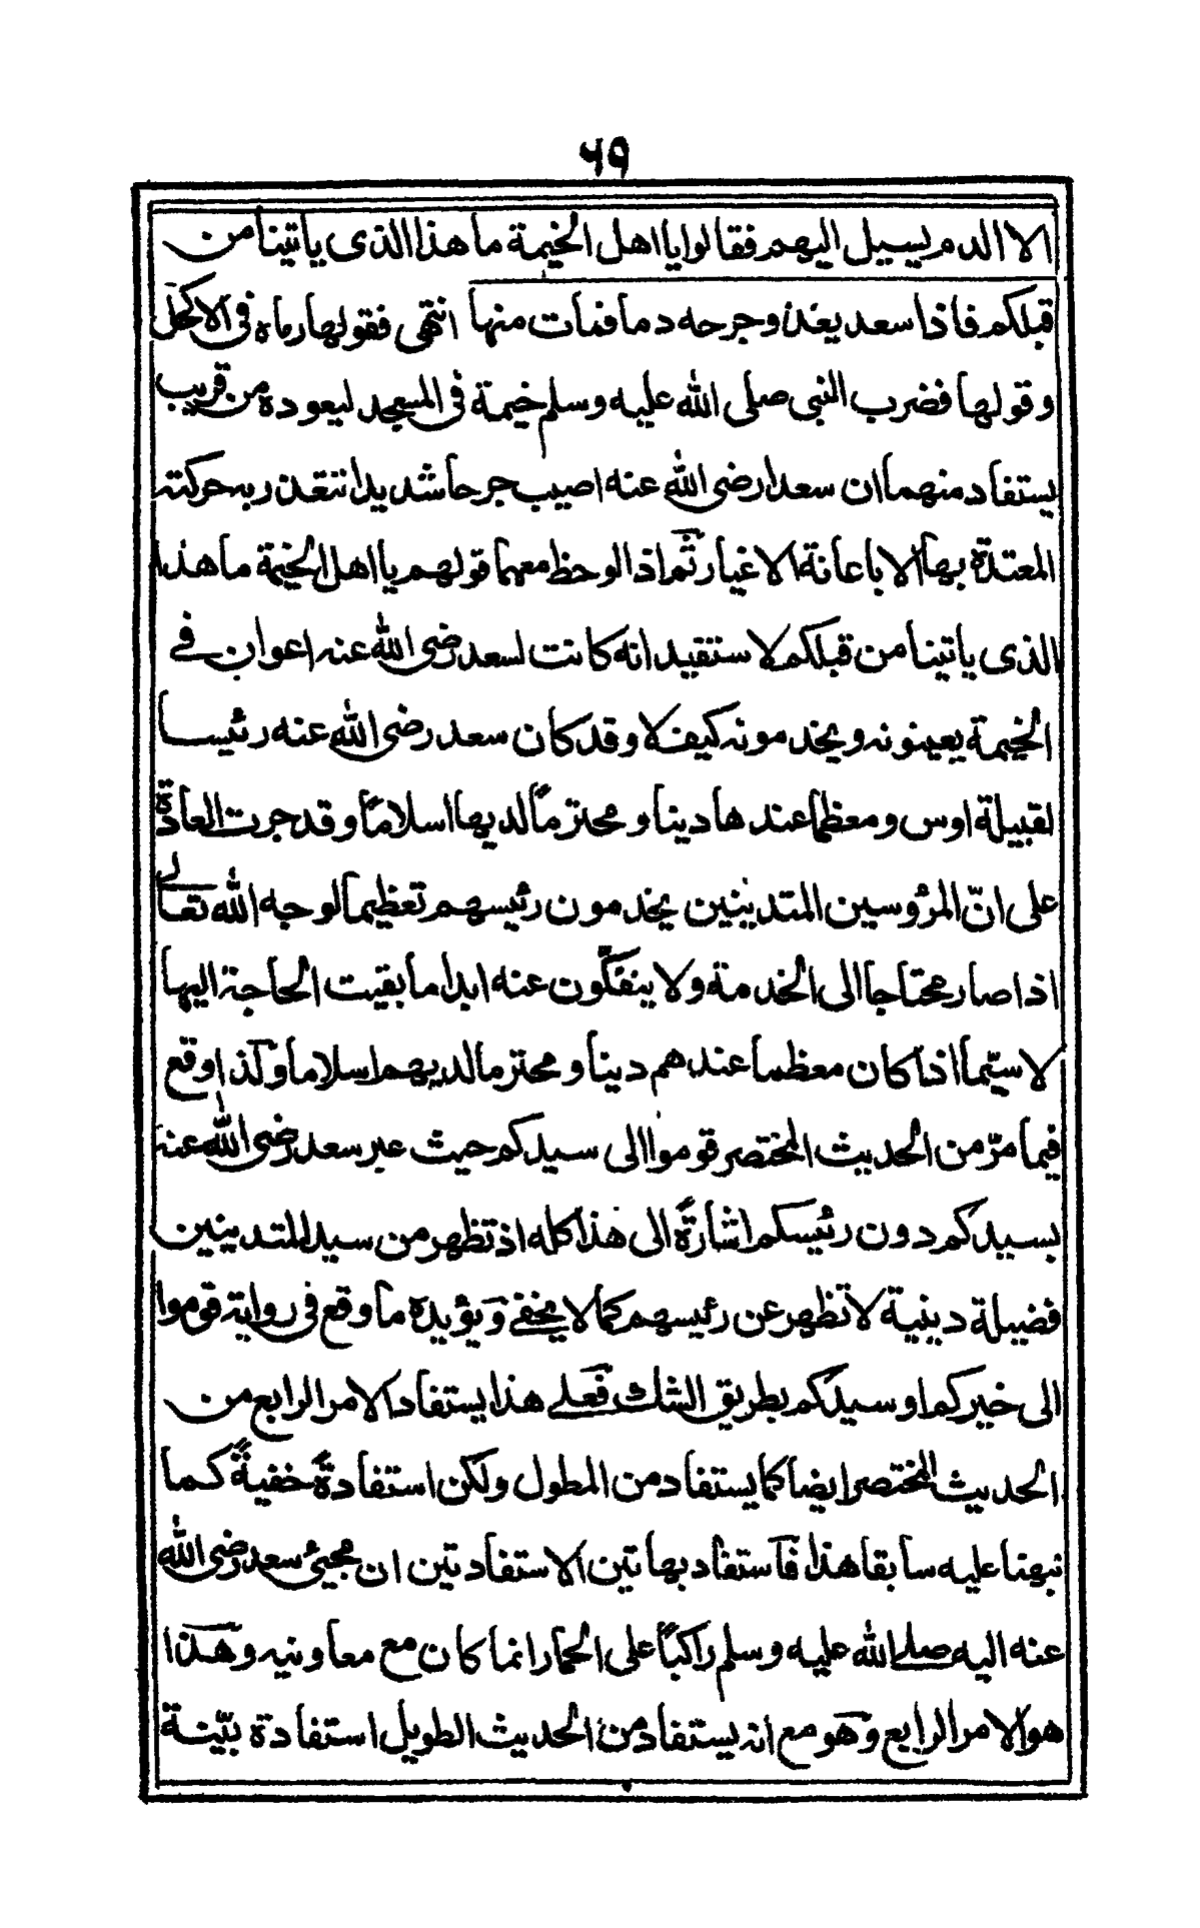 ٦٩
الا الدم يسيل اليهم فقالوا يا اهل الخيمة ما هذا الذى ياتينا من
قبلكم فاذا سعد يغذ وجرحه دما فمات منها انتهى فقولها رماه فى الاكحل
وقولها فضرب النبى صلى الله عليه وسلم خيمة فى المسجد ليعوده من قريب
يستفاد منهما ان سعدا رضى الله عنه اصيب جرحا شديدا تتعذر به حركته
المعتدة بها الا باعانة الاغيار ثم اذا لوحظ معهما قولهم يا اهل الخيمة ما هذا
الذى ياتينا من قبلكم لاستفيد انه كانت لسعد رضى الله عنه اعوان فے
الخيمة يعينونه ويخدمونه كيف لا وقد كان سعد رضى الله عنه رئيسا
لقبيلة اوس ومعظما عندها دينا ومحترمًا لديها اسلامًا وقد جرت العادة
على انّ المرؤسين المتدينين يخدمون رئيسهم تعظيما لوجه الله تعالے
اذا صار محتاجا الى الخدمة ولا ينفكّون عنه ابدا ما بقيت الحاجة اليها
لاسيّما اذا كان معظما عندهم دينا ومحترما لديهم اسلاما وكذا وقع
فيما مرّ من الحديث المختصر قوموا الى سيدكم حيث عبر سعد رضى الله عنه
بسيدكم دون رئيسكم اشارةً الى هذا كله اذ تظهر من سيد المتدينين
فضيلة دينية لا تظهر عن رئيسهم كما لا يخفے ويؤيده ما وقع فى رواية قوموا
الى خيركم او سيدكم بطريق الشك فعلے هذا يستفاد الامر الرابع من
الحديث المختصر ايضا كما يستفاد من المطول ولكن استفادةً خفيةً كما
نبهنا عليه سابقا هذا فاستفاد بهاتين الاستفادتين ان مجيئ سعد رضى الله
عنه اليه صلے الله عليه وسلم راكبًا على الحمار انما كان مع معاونيه وهذا
هو الامر الرابع وهو مع انه يستفاد من الحديث الطويل استفادة بيّنة